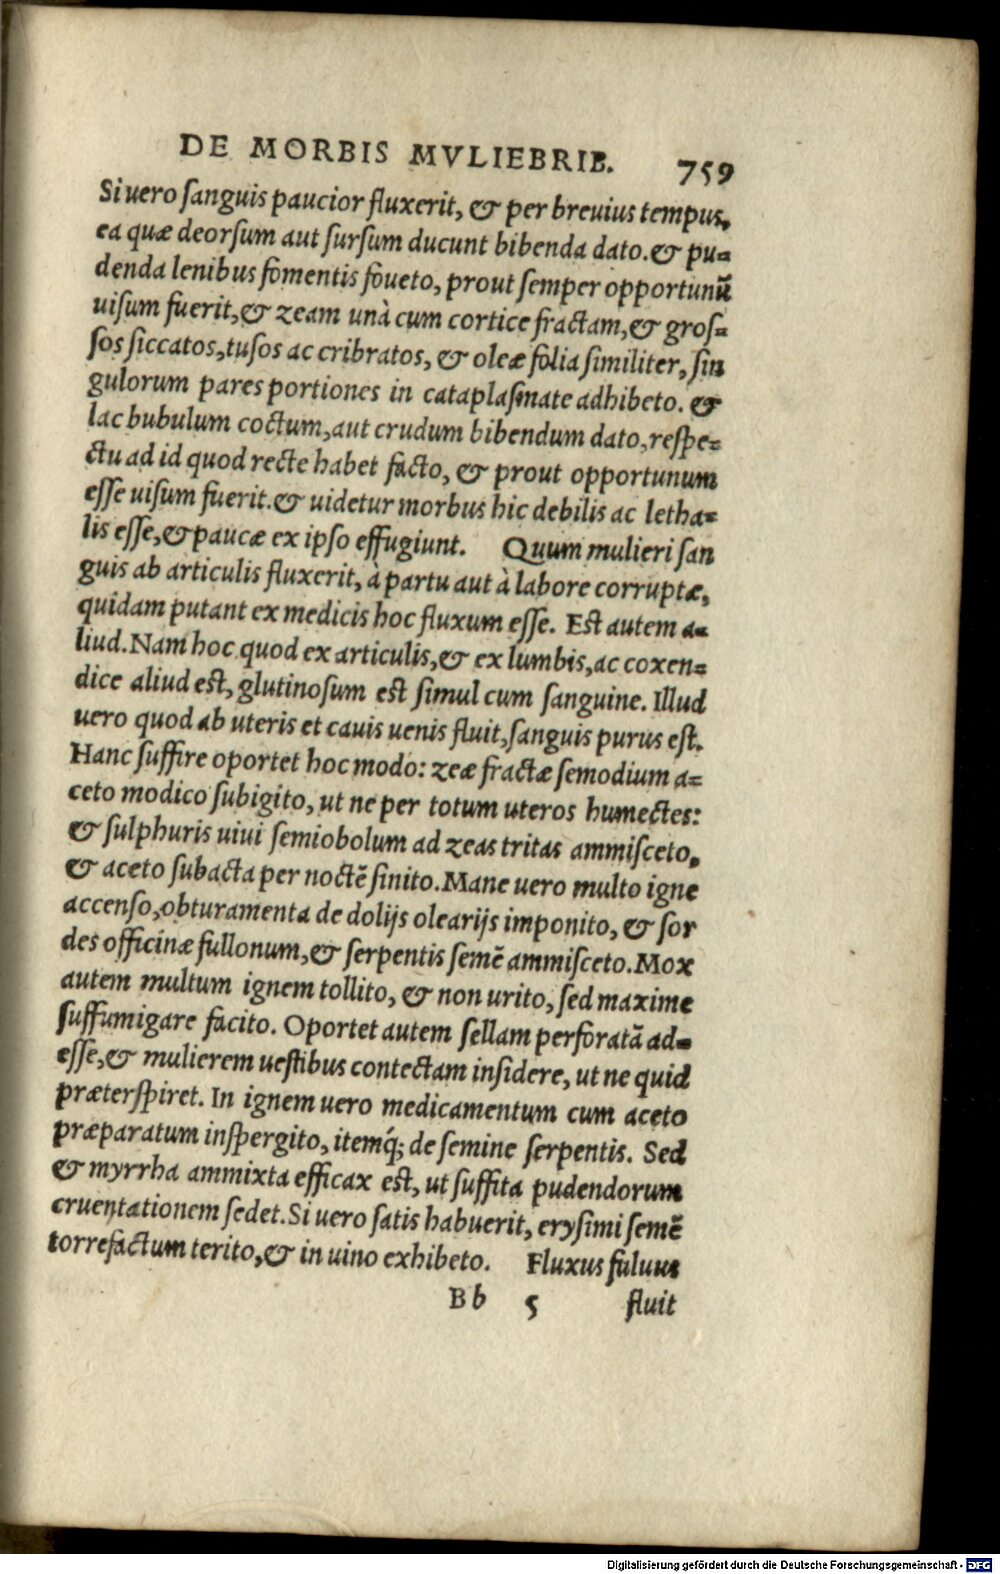 DE MORBIS MVLIEBRIB. 759
Si uero ſanguis paucior fluxerit, & per breuius tempus,
ea quæ deorſum aut ſurſum ducunt bibenda dato. & pu-
denda lenibus fomentis foueto, prout ſemper opportunū
uiſum fuerit, & zeam unà cum cortice fractam, & groſ-
ſos ſiccatos, tuſos ac cribratos, & oleæ folia ſimiliter, ſin
gulorum pares portiones in cataplaſmate adhibeto. &
lac bubulum coctum, aut crudum bibendum dato, reſpe-
ctu ad id quod recte habet facto, & prout opportunum
eſſe uiſum fuerit. & uidetur morbus hic debilis ac letha-
lis eſſe, & paucæ ex ipſo effugiunt. Quum mulieri ſan
guis ab articulis fluxerit, à partu aut à labore corruptæ,
quidam putant ex medicis hoc fluxum eſſe. Eſt autem a-
liud. Nam hoc quod ex articulis, & ex lumbis, ac coxen-
dice aliud eſt, glutinoſum eſt ſimul cum ſanguine. Illud
uero quod ab uteris et cauis uenis fluit, ſanguis purus eſt.
Hanc ſuffire oportet hoc modo: zeæ fractæ ſemodium a-
ceto modico ſubigito, ut ne per totum uteros humectes:
& ſulphuris uiui ſemiobolum ad zeas tritas ammiſceto,
& aceto ſubacta per noctē ſinito. Mane uero multo igne
accenſo, obturamenta de dolijs olearijs imponito, & ſor
des officinæ fullonum, & ſerpentis ſemē ammiſceto. Mox
autem multum ignem tollito, & non urito, ſed maxime
ſuffumigare facito. Oportet autem ſellam perforatā ad-
eſſe, & mulierem ueſtibus contectam inſidere, ut ne quid
præterſpiret. In ignem uero medicamentum cum aceto
præparatum inſpergito, itemq́; de ſemine ſerpentis. Sed
& myrrha ammixta efficax eſt, ut ſuffita pudendorum
cruentationem ſedet. Si uero ſatis habuerit, eryſimi ſemē
torrefactum terito, & in uino exhibeto. Fluxus fuluus
Bb 5 fluit
Digitalisierung gefördert durch die Deutsche Forschungsgemeinschaft - DFG